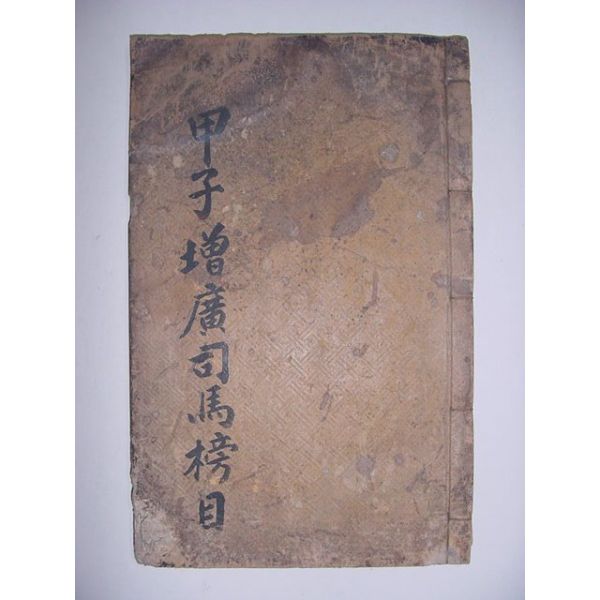 甲子增廣司馬榜目